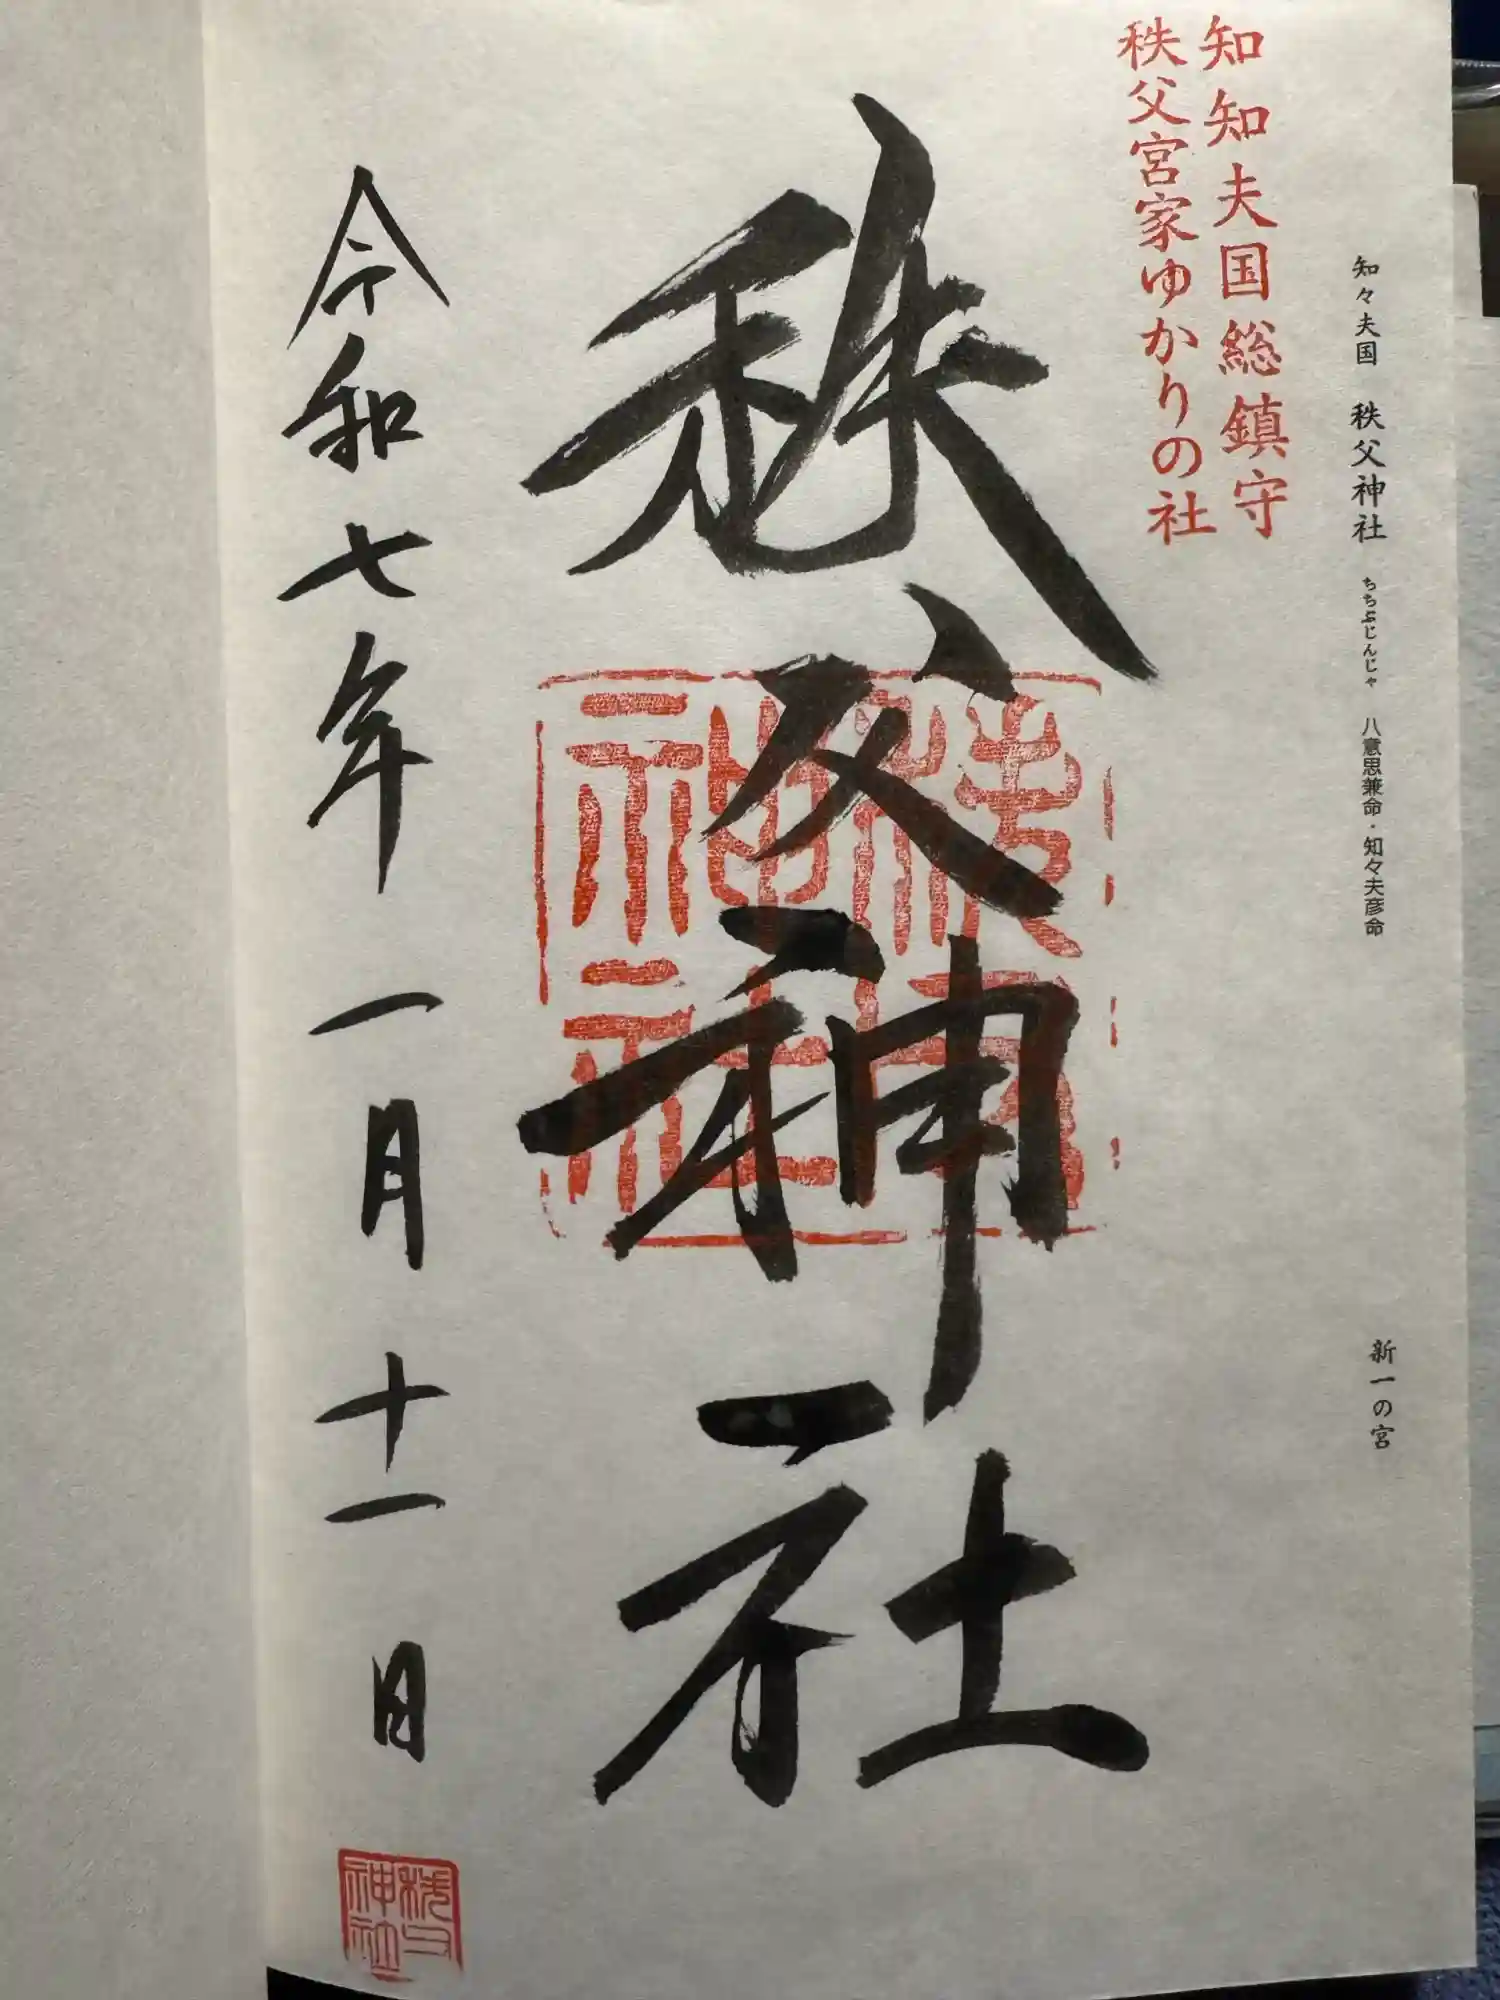 知々夫国　秩父神社　ちちぶじんじゃ　八意思兼命・知々夫彦命　新一の宮
知知夫国総鎮守
秩父宮家ゆかりの社
秩父神社
令和七年一月十一日
秩父神社